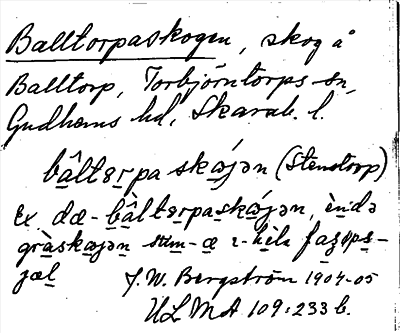 Balltorpaskogen, skog å
Balltorp, Torbjörntorps sn,
Gudhems hd, Skarab. l.
bâltərpa skǿjən (Stenstorp)
Ex. dæ - bâltərpaskǿjən, ènda
gràskøjən söm-æ i-hèla fazops-
jæl J. W. Bergström 1904-05
ULMA 109:233 b.